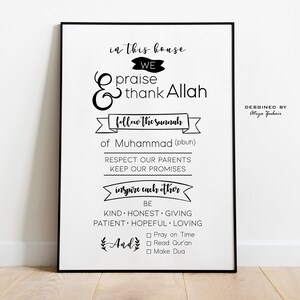 in this house
WE
& praise
thank Allah
follow the sunnah
of Muhammad (pbuh)
RESPECT OUR PARENTS
KEEP OUR PROMISES
inspire each other
BE
KIND • HONEST • GIVING
PATIENT • HOPEFUL • LOVING
And
Pray on Time
Read Qur'an
Make Dua
DESIGNED BY